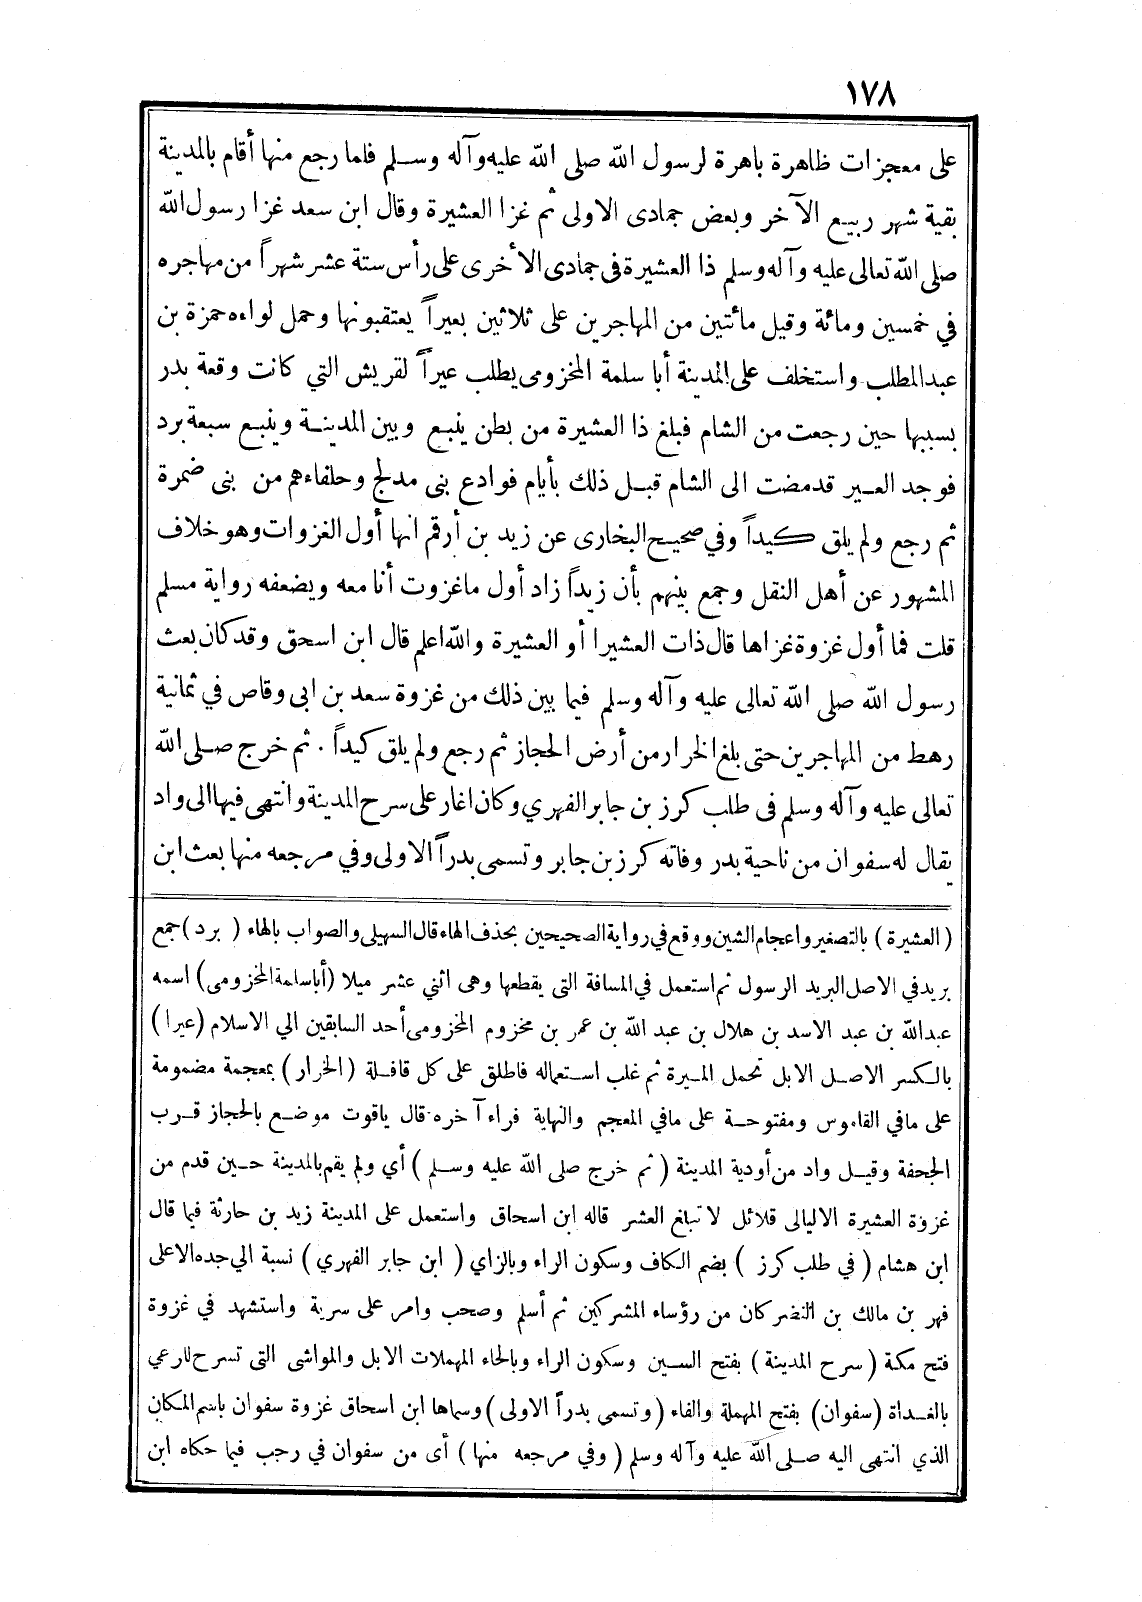 ١٧٨
على معجزات ظاهرة باهرة لرسول الله صلى الله عليه وآله وسلم فلما رجع منها أقام بالمدينة
بقية شهر ربيع الآخر وبعض جمادى الاولى ثم غزا العشيرة وقال ابن سعد غزا رسول الله
صلى الله تعالى عليه وآله وسلم ذا العشيرة في جمادى الأخرى على رأس ستة عشر شهراً من مهاجره
في خمسين ومائة وقيل مائتين من المهاجرين على ثلاثين بعيراً يعتقبونها وحمل لواءه حمزة بن
عبدالمطلب واستخلف على المدينة أبا سلمة المخزومى يطلب عيراً لقريش التي كانت وقعة بدر
بسببها حين رجعت من الشام فبلغ ذا العشيرة من بطن ينبع وبين المدينة وينبع سبعة برد
فوجد العير قدمضت الى الشام قبل ذلك بأيام فوادع بنى مدلج وحلفاءهم من بنى ضمرة
ثم رجع ولم يلق كيداً وفي صحيح البخارى عن زيد بن أرقم انها أول الغزوات وهو خلاف
المشهور عن أهل النقل وجمع بينهم بأن زيداً زاد أول ماغزوت أنا معه ويضعفه رواية مسلم
قلت فما أول غزوة غزاها قال ذات العشيرا أو العشيرة والله اعلم قال ابن اسحق وقد كان بعث
رسول الله صلى الله تعالى عليه وآله وسلم فيما بين ذلك من غزوة سعد بن ابى وقاص في ثمانية
رهط من المهاجرين حتى بلغ الخرار من أرض الحجاز ثم رجع ولم يلق كيداً . ثم خرج صلى الله
تعالى عليه وآله وسلم فى طلب كرز بن جابر الفهري وكان اغار على سرح المدينة وانتهى فيها الى واد
يقال له سفوان من ناحية بدر وفاته كرز بن جابر وتسمى بدراً الاولى وفي مرجعه منها بعث ابن
(العشيرة) بالتصغير واعجام الشين ووقع في رواية الصحيحين بحذف الهاء قال السهيلى والصواب بالهاء (برد) جمع
بريد في الاصل البريد الرسول ثم استعمل في المسافة التى يقطعها وهى اثنى عشر ميلا (أبا سلمة المخزومى) اسمه
عبدالله بن عبد الاسد بن هلال بن عبد الله بن عمر بن مخزوم المخزومى أحد السابقين الي الاسلام (عيرا)
بالكسر الاصل الابل تحمل الميرة ثم غلب استعماله فاطلق على كل قافلة (الخرار) بمعجمة مضمومة
على مافي القاموس ومفتوحة على مافي المعجم والنهاية فراء آخره قال ياقوت موضع بالحجاز قرب
الجحفة وقيل واد من أودية المدينة (ثم خرج صلى الله عليه وسلم) أي ولم يقم بالمدينة حين قدم من
غزوة العشيرة الاليالى قلائل لا تبلغ العشر قاله ابن اسحاق واستعمل على المدينة زيد بن حارثة فيما قال
ابن هشام (في طلب كرز) بضم الكاف وسكون الراء وبالزاي (ابن جابر الفهري) نسبة الي جده الاعلى
فهر بن مالك بن النضر كان من رؤساء المشركين ثم أسلم وصحب وامر على سرية واستشهد في غزوة
فتح مكة (سرح المدينة) بفتح السين وسكون الراء وبالحاء المهملات الابل والمواشى التى تسرح للرعي
بالغداة (سفوان) بفتح المهملة والفاء (وتسمى بدراً الاولى) وسماها ابن اسحاق غزوة سفوان باسم المكان
الذي انتهى اليه صلى الله عليه وآله وسلم (وفي مرجعه منها) أى من سفوان في رجب فيما حكاه ابن